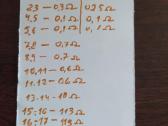 2.3 — 0.3 Ω | 0.25 Ω
4.5 — 0,1 Ω | 0,1 Ω
5,6 — 0,1 Ω | 0,1 Ω
7,8 — 0,7 Ω
8,9 — 0.7 Ω
10,11 — 0,6 Ω
11.12 — 0.6 Ω
13-14 - 18 Ω
15-16 — 113 Ω
16-17 — 119 Ω